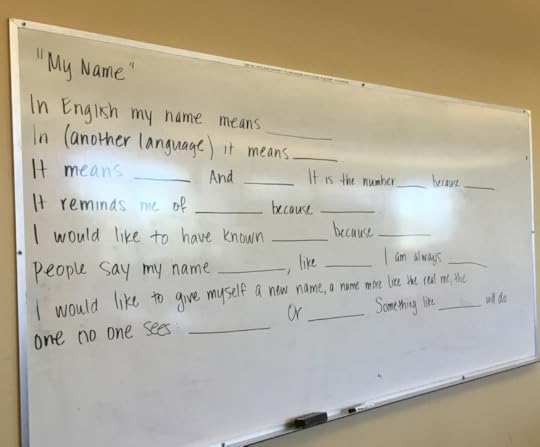 "My Name"
In English my name means ________
In (another language) it means ______
It means ______ And ______ It is the number ____ because ____
It reminds me of ________ because ______
I would like to have known ______ because ______
People say my name ________, like _____ I am always _____
I would like to give myself a new name, a name more like the real me, the
one no one sees ________ Or ______ Something like _____ will do